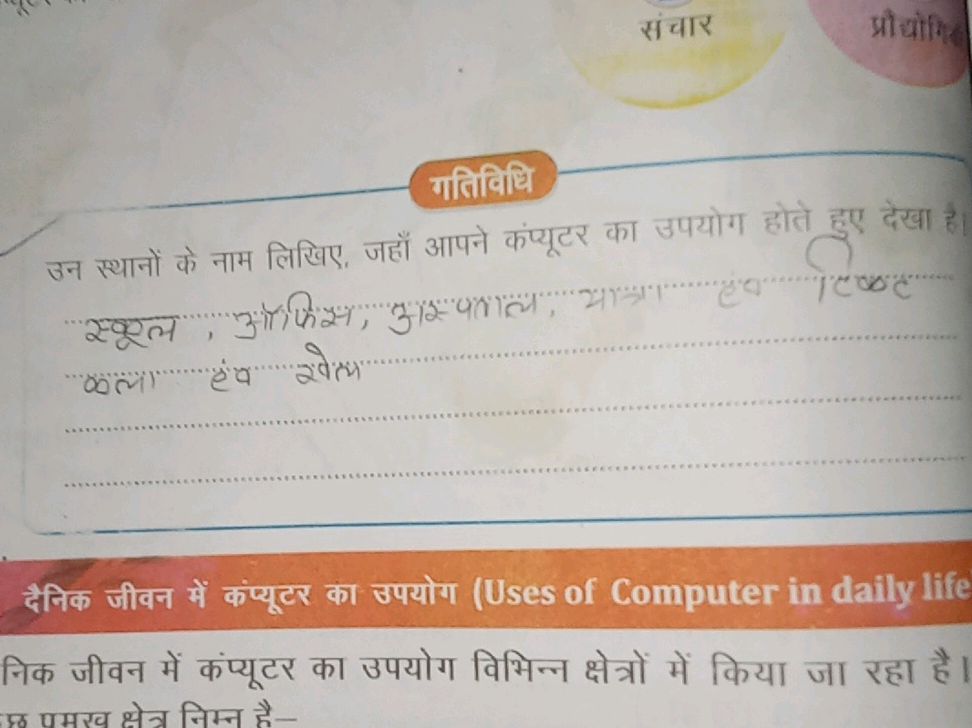 संचार
गतिविधि
उन स्थानों के नाम लिखिए, जहाँ आपने कंप्यूटर का उपयोग होते हुए देखा है।
स्कूल, ऑफिस, अस्पताल, यात्रा हंव टिकट
कला हंव खेल
दैनिक जीवन में कंप्यूटर का उपयोग (Uses of Computer in daily life
निक जीवन में कंप्यूटर का उपयोग विभिन्न क्षेत्रों में किया जा रहा है।
प्रमुख क्षेत्र निम्न है—